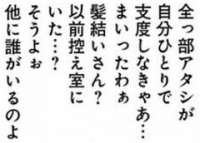 全っ部アタシが
自分ひとりで
支度しなきゃあ…
まいったわぁ
髪結いさん？
以前控え室に
いた…？
そうよぉ
他に誰がいるのよ